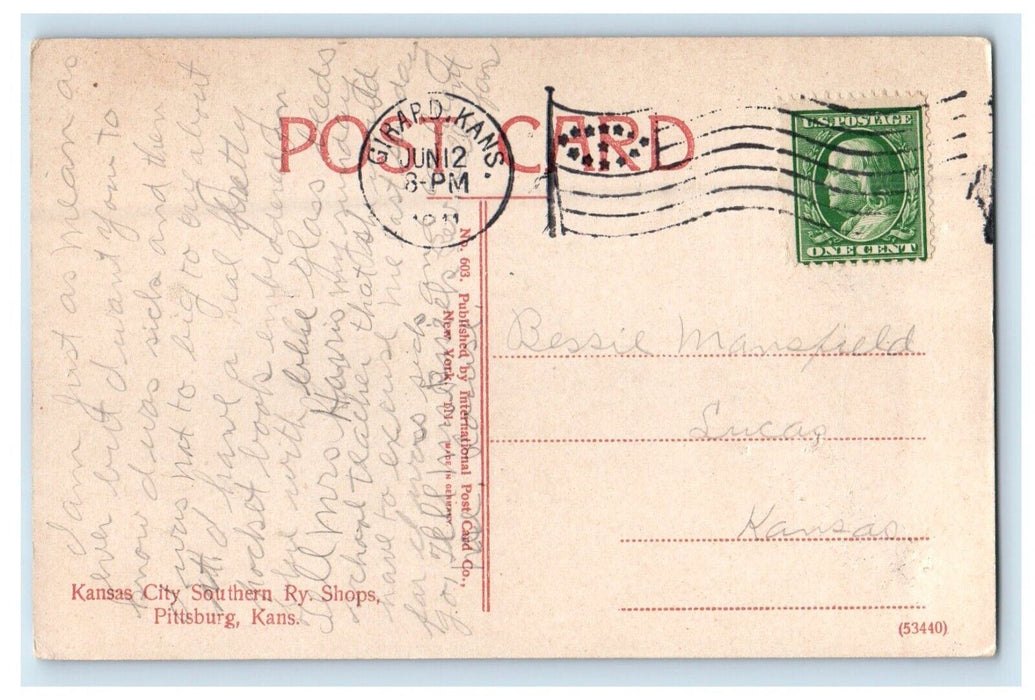 POST CARD
GIRARD, KANS.
JUN 12
8-PM
1911
U.S. POSTAGE
ONE CENT
I am just as mean as
ever but I want you to
know I was sick and then
I was not to big to cry but
I have a real Pretty
pocket book embrodered in
blue with blue Glass beeds
Tell Mrs Harris my
school teacher that she would
have to excuse me last
for I was sick and
No. 603. Published by International Post Card Co.,
New York,
MADE IN GERMANY
Bessie Mansfield
Lucas
Kansas
Kansas City Southern Ry. Shops,
Pittsburg, Kans.
(53440)